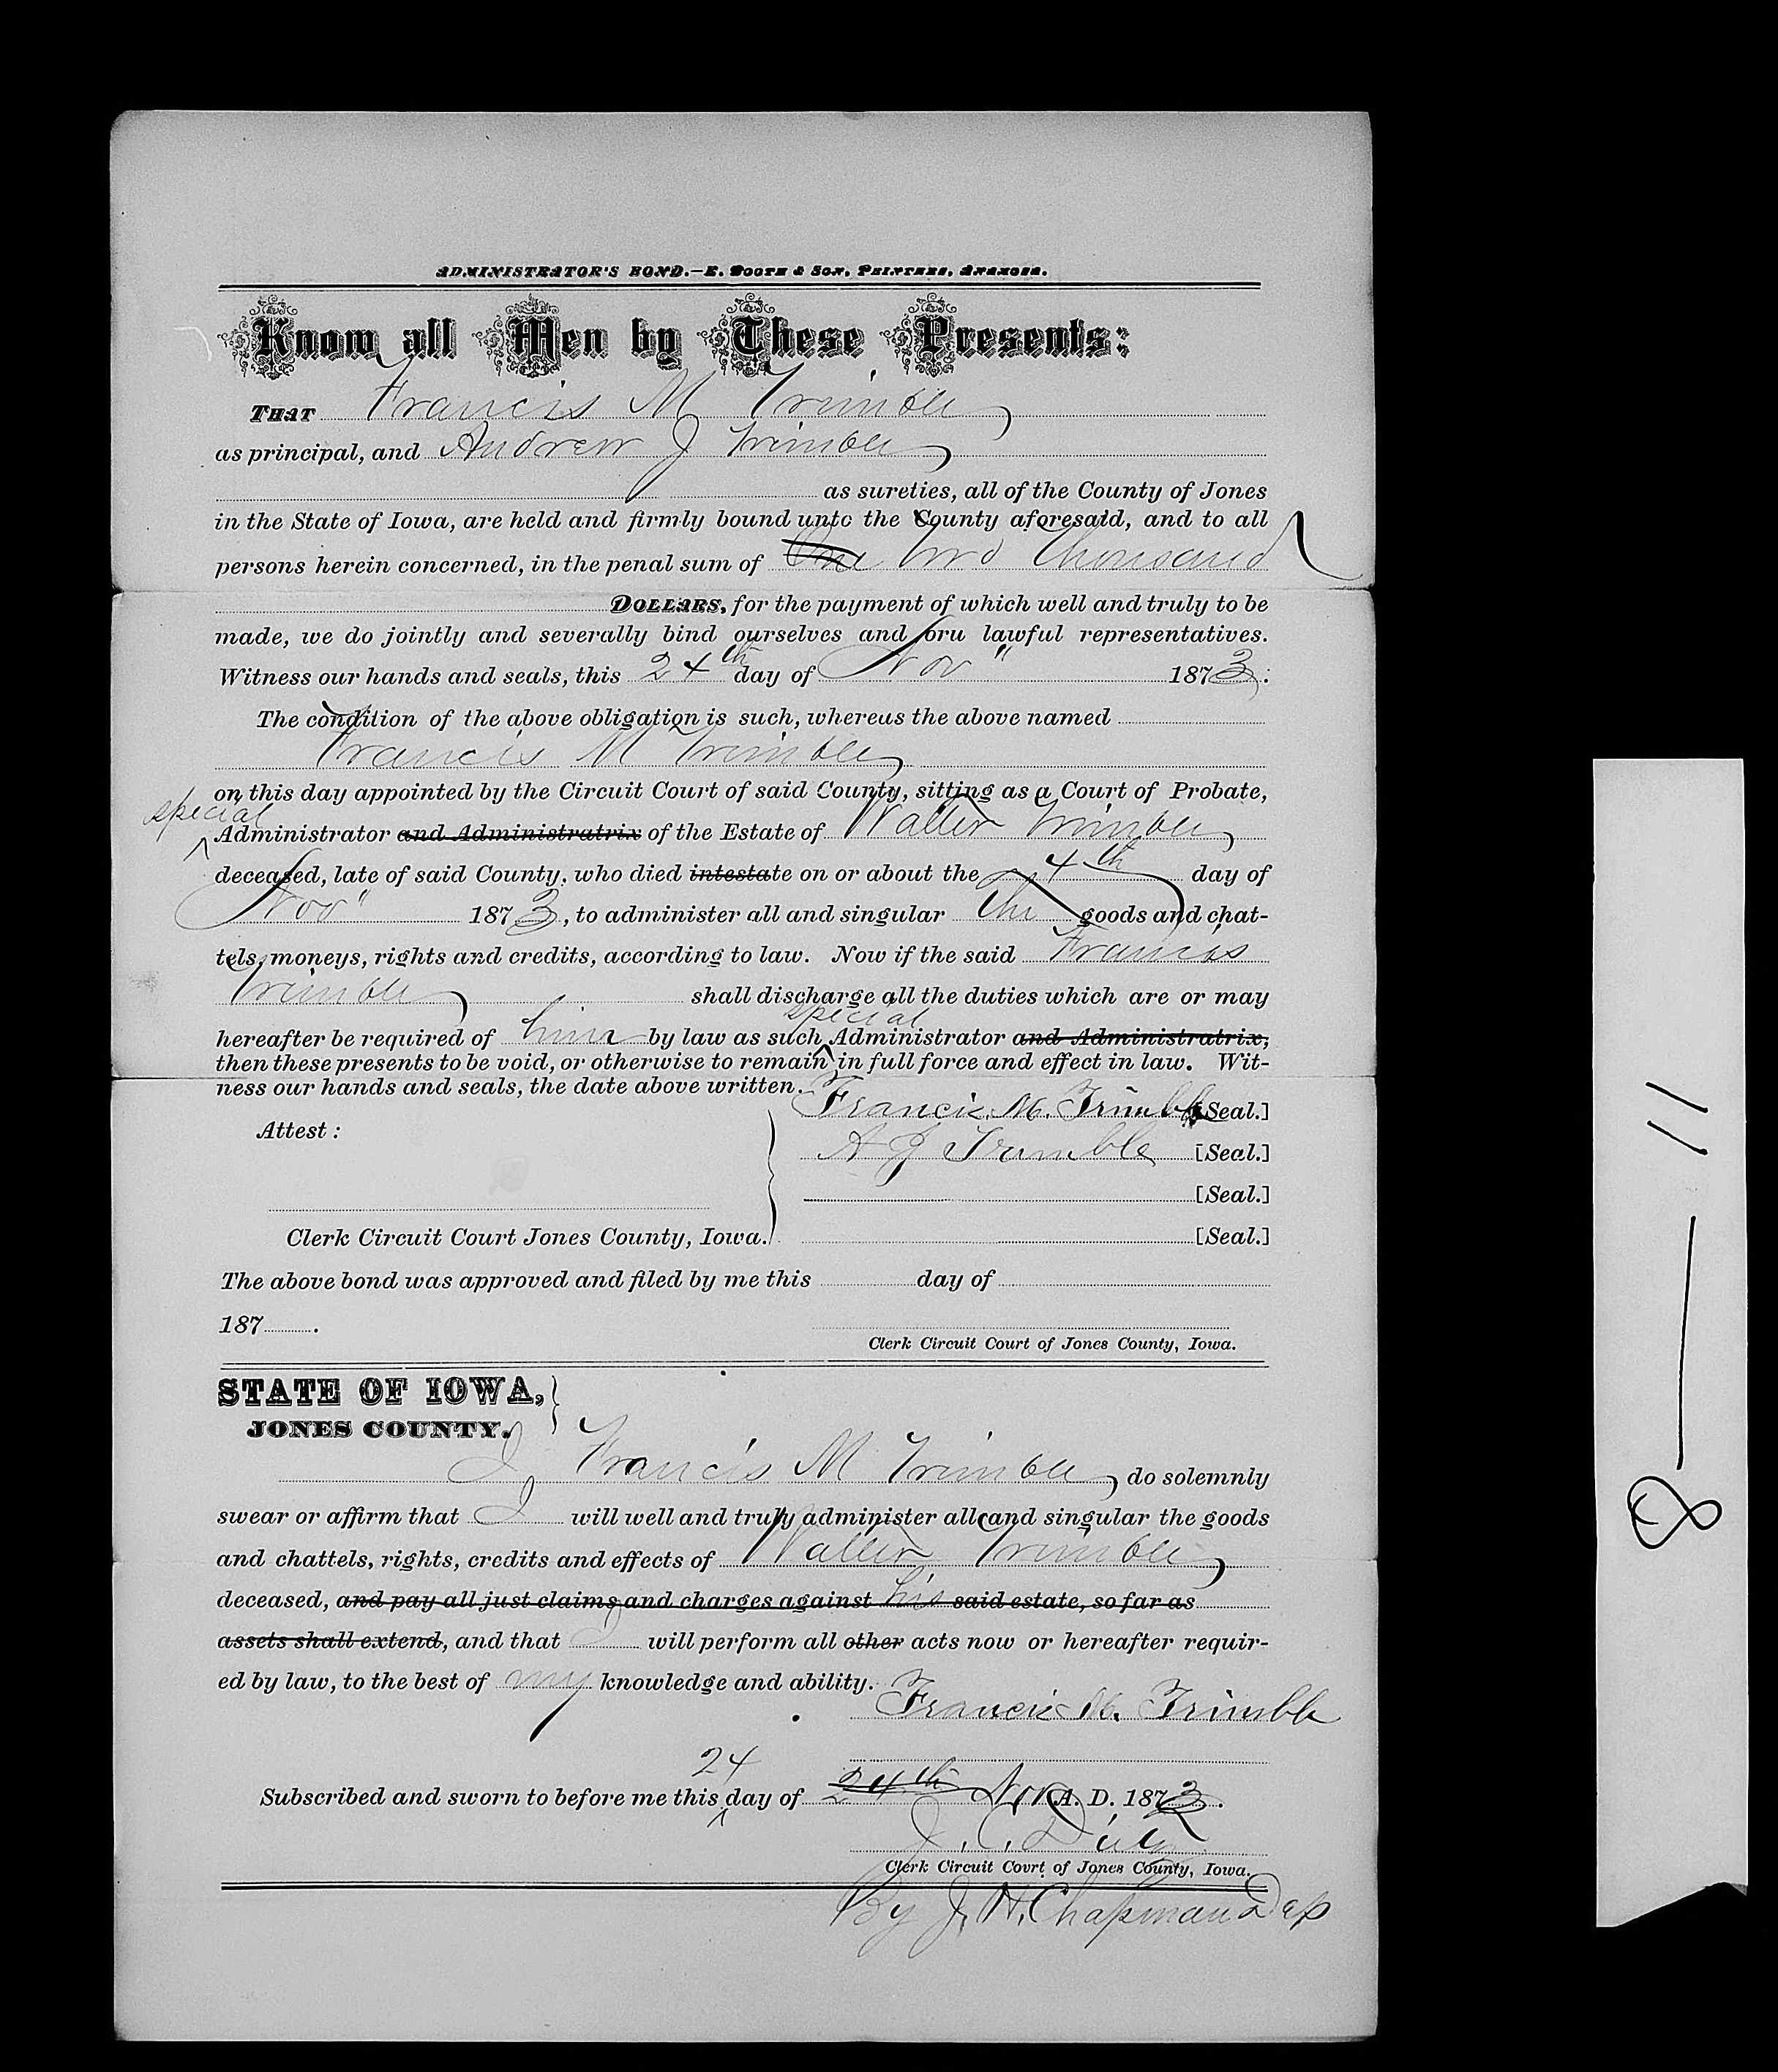 ADMINISTRATOR'S BOND.—E. BOOTH & SON, PRINTERS, ANAMOSA.
Know all Men by These Presents:
THAT Francis M Trimble
as principal, and Andrew J Trimble
as sureties, all of the County of Jones
in the State of Iowa, are held and firmly bound unto the County aforesaid, and to all
persons herein concerned, in the penal sum of One Two Thousand
DOLLARS, for the payment of which well and truly to be
made, we do jointly and severally bind ourselves and oru lawful representatives.
Witness our hands and seals, this 24th day of Nov" 1873:
The condition of the above obligation is such, whereas the above named
Francis M Trimble
on this day appointed by the Circuit Court of said County, sitting as a Court of Probate,
special
Administrator and Administratrix of the Estate of Walter Trimble
deceased, late of said County, who died intestate on or about the 4th day of
Nov" 1873, to administer all and singular the goods and chat-
tels, moneys, rights and credits, according to law. Now if the said Francis
Trimble shall discharge all the duties which are or may
special
hereafter be required of him by law as such Administrator and Administratrix,
then these presents to be void, or otherwise to remain in full force and effect in law. Wit-
ness our hands and seals, the date above written.
Francis M. Trimble [Seal.]
Attest:
A J Trimble [Seal.]
[Seal.]
Clerk Circuit Court Jones County, Iowa. [Seal.]
The above bond was approved and filed by me this day of
187 .
Clerk Circuit Court of Jones County, Iowa.
STATE OF IOWA,
JONES COUNTY.
I, Francis M Trimble, do solemnly
swear or affirm that I will well and truly administer all and singular the goods
and chattels, rights, credits and effects of Walter Trimble
deceased, and pay all just claims and charges against his said estate, so far as
assets shall extend, and that I will perform all other acts now or hereafter requir-
ed by law, to the best of my knowledge and ability.
Francis M. Trimble
24
Subscribed and sworn to before me this day of 24th Nov A. D. 1873.
J. C. Dietz
Clerk Circuit Covrt of Jones County, Iowa.
By J. H. Chapman Dep
8—11